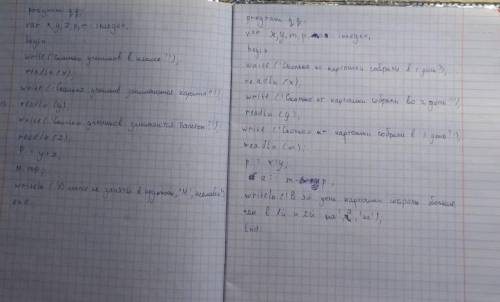 program q q;
var x, y, z, p, m: integer;
begin
write ('Сколько учеников в классе?');
readln (x);
write ('Сколько учеников занимаются
readln (y);
write ('Сколько учеников занимаются
readln (z);
p y+z;
writeln ('В классе не заняты в кружках', 'М', 'человек')
end.
program q q;
var x, y, m, p, a: integer;
begin
write ('Сколько кг картошки собрали в 1 день?');
readln (x);
write ('Сколько кг картошки собрали во 2 день?');
readln (y);
write ('Сколько кг картошки собрали в день?');
readln (m);
p: x+y;
a: m-p;
writeln ('В 3й день картошки собрали больше
чем в 1й и 2й на', 'кг');
End.